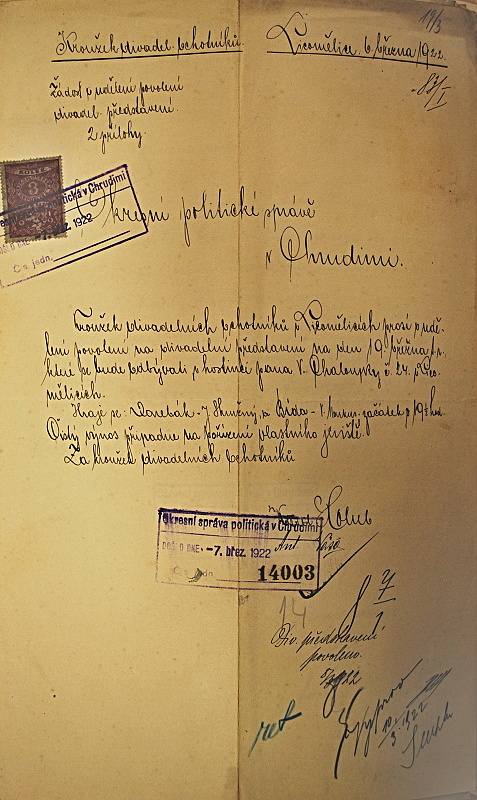 14/3
Kroužek divadel. ochotníků Licomělice 6. března 1922.
Žádost o udělení povolení
divadel. představení.
2 přílohy.
KOLEK
8
politická v Chrudimi
DOŠLO DNE 1922
Čís. jedn.
Okresní politické správě
v Chrudimi.
Kroužek divadelních ochotníků v Licomělicích prosí o udě-
lení povolení na divadelní představení na den 19. března t. r.
které se bude odbývati v hostinci pana V. Chaloupky č. 24. v Lico-
mělicích.
Hraje se: Darebák - J. a Bída - V. začátek o hod.
Čistý výnos připadne na pořízení vlastního jeviště.
Za kroužek divadelních ochotníků
Holub
Okresní správa politická v Chrudimi
DOŠLO DNE -7. břez. 1922
Ant.
Čís. jedn. 14003
14
Div. představení
povoleno.
1922
ret
10/3 1922